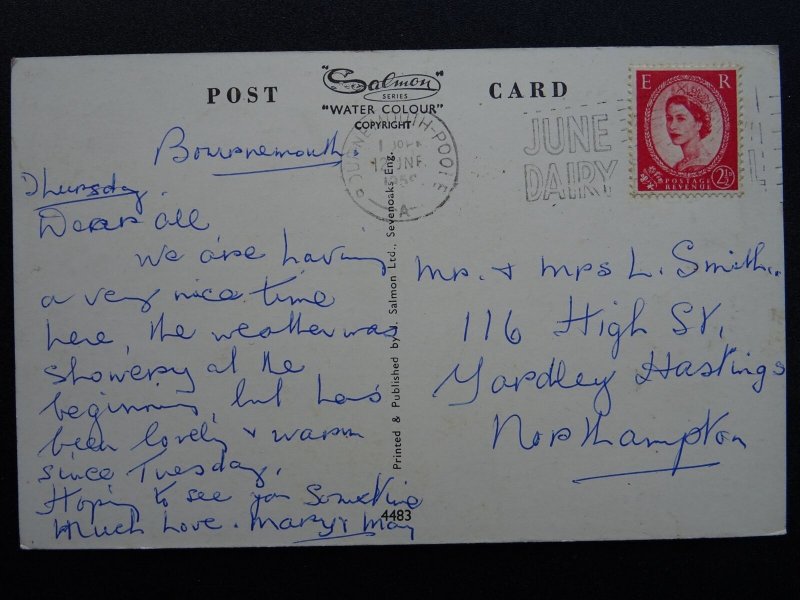 POST CARD
"Salmon"
SERIES
"WATER COLOUR"
COPYRIGHT
BOURNEMOUTH-POOLE
12 JNE
A
JUNE
DAIRY
E R
POSTAGE
REVENUE
2½D
Bournemouth.
Thursday.
Dear all,
We are having
a very nice time
here, the weather was
showery at the
beginning, but has
been lovely & warm
since Tuesday.
Hoping to see you sometime
Much Love. Mary & May
Printed & Published by J. Salmon Ltd., Sevenoaks Eng.
4483
Mr. & Mrs L. Smith.
116 High St,
Yardley Hastings
Northampton